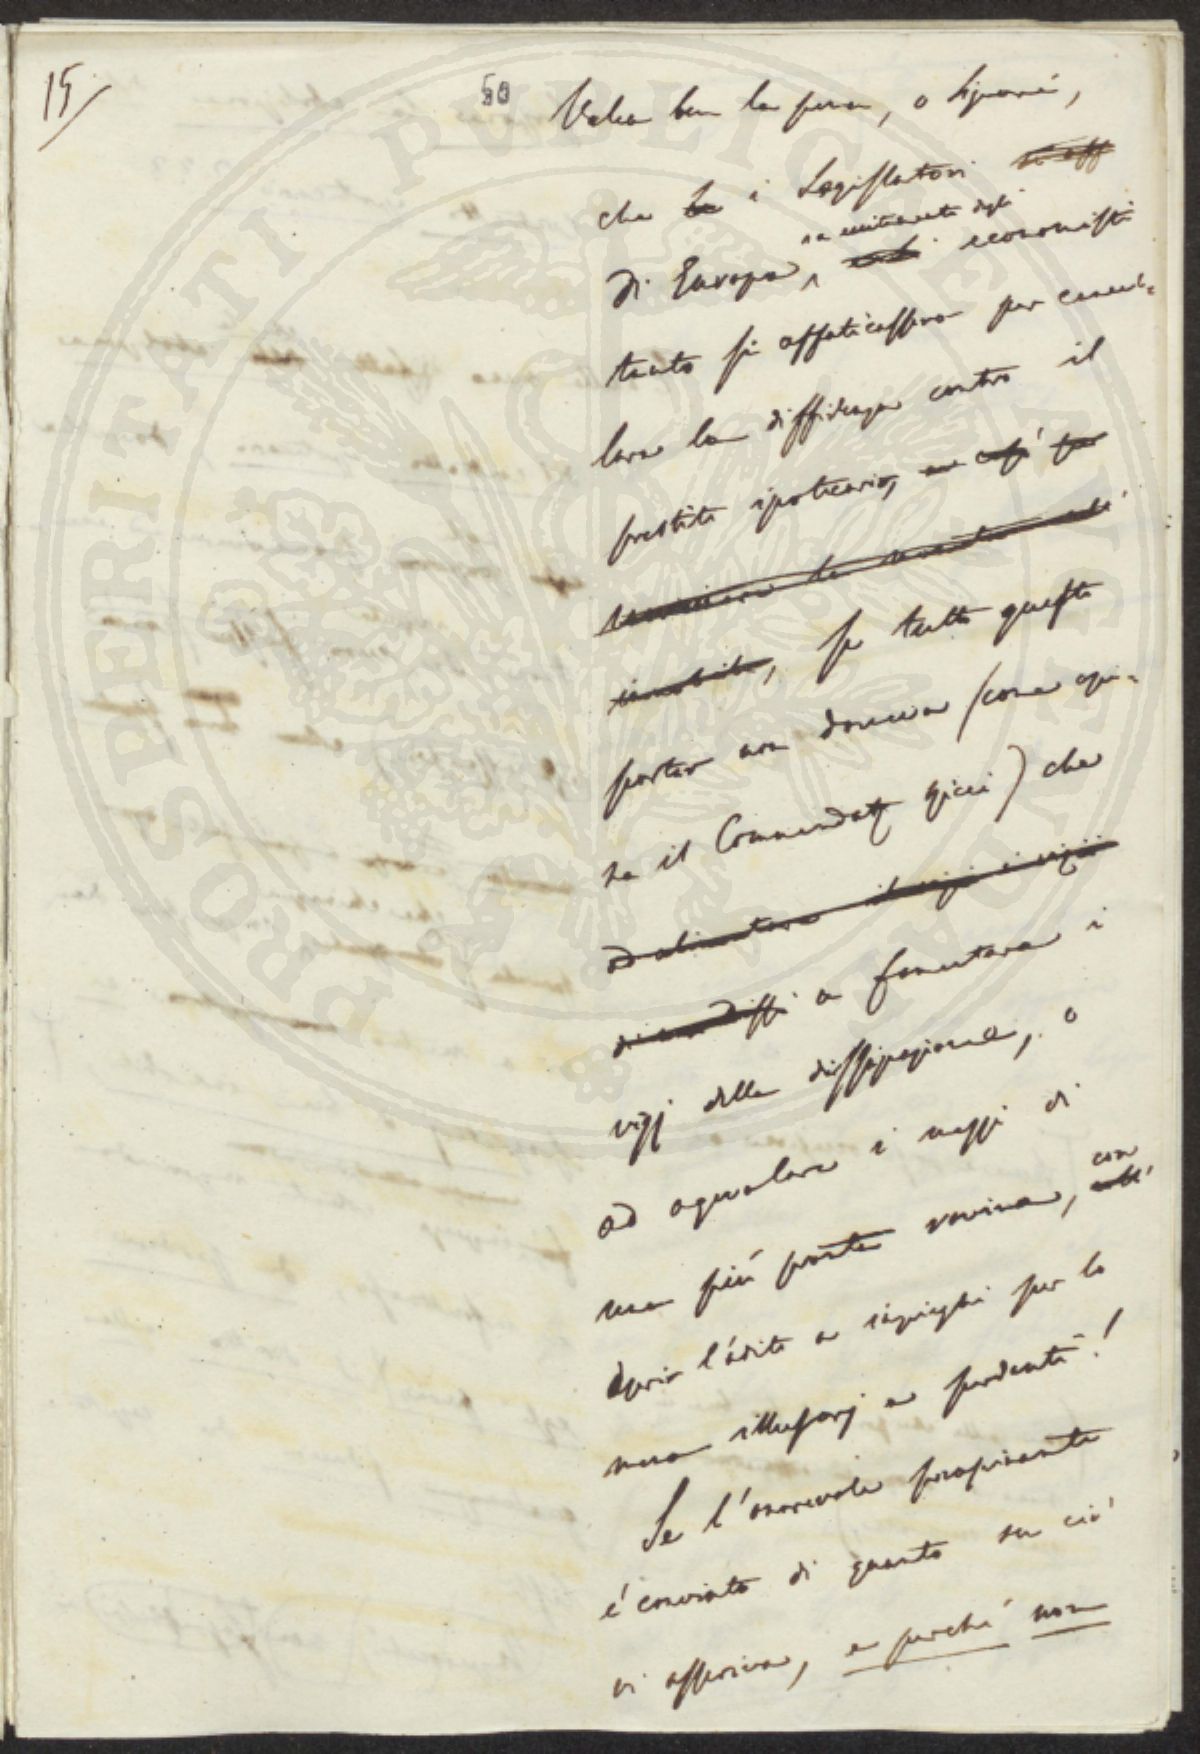 15
50
Valea ben la pena, o Signori,
che ~~le~~ i Legislatori ~~si aff~~
di Europa, su eccitamento degli economisti
tanto si affaticassero per cancel-
lare la diffidenza contro il
prestito ipotecario, ~~e così~~
~~immobile~~, se tutto questo
portar non doveva (come opi-
na il Commendat.e Ricci) che
~~ad alimentare~~
a fomentare i
vizj della dissipazione, o
ad agevolare i mezzi di
una più pronta rovina, con
aprir l'adito a impieghi per lo
meno illusorj e perdenti!
Se l'onorevole preopinante
è convinto di quanto su ciò
vi asseriva, e perchè non
PROSPERITATI PUBLICAE AUGENDAE